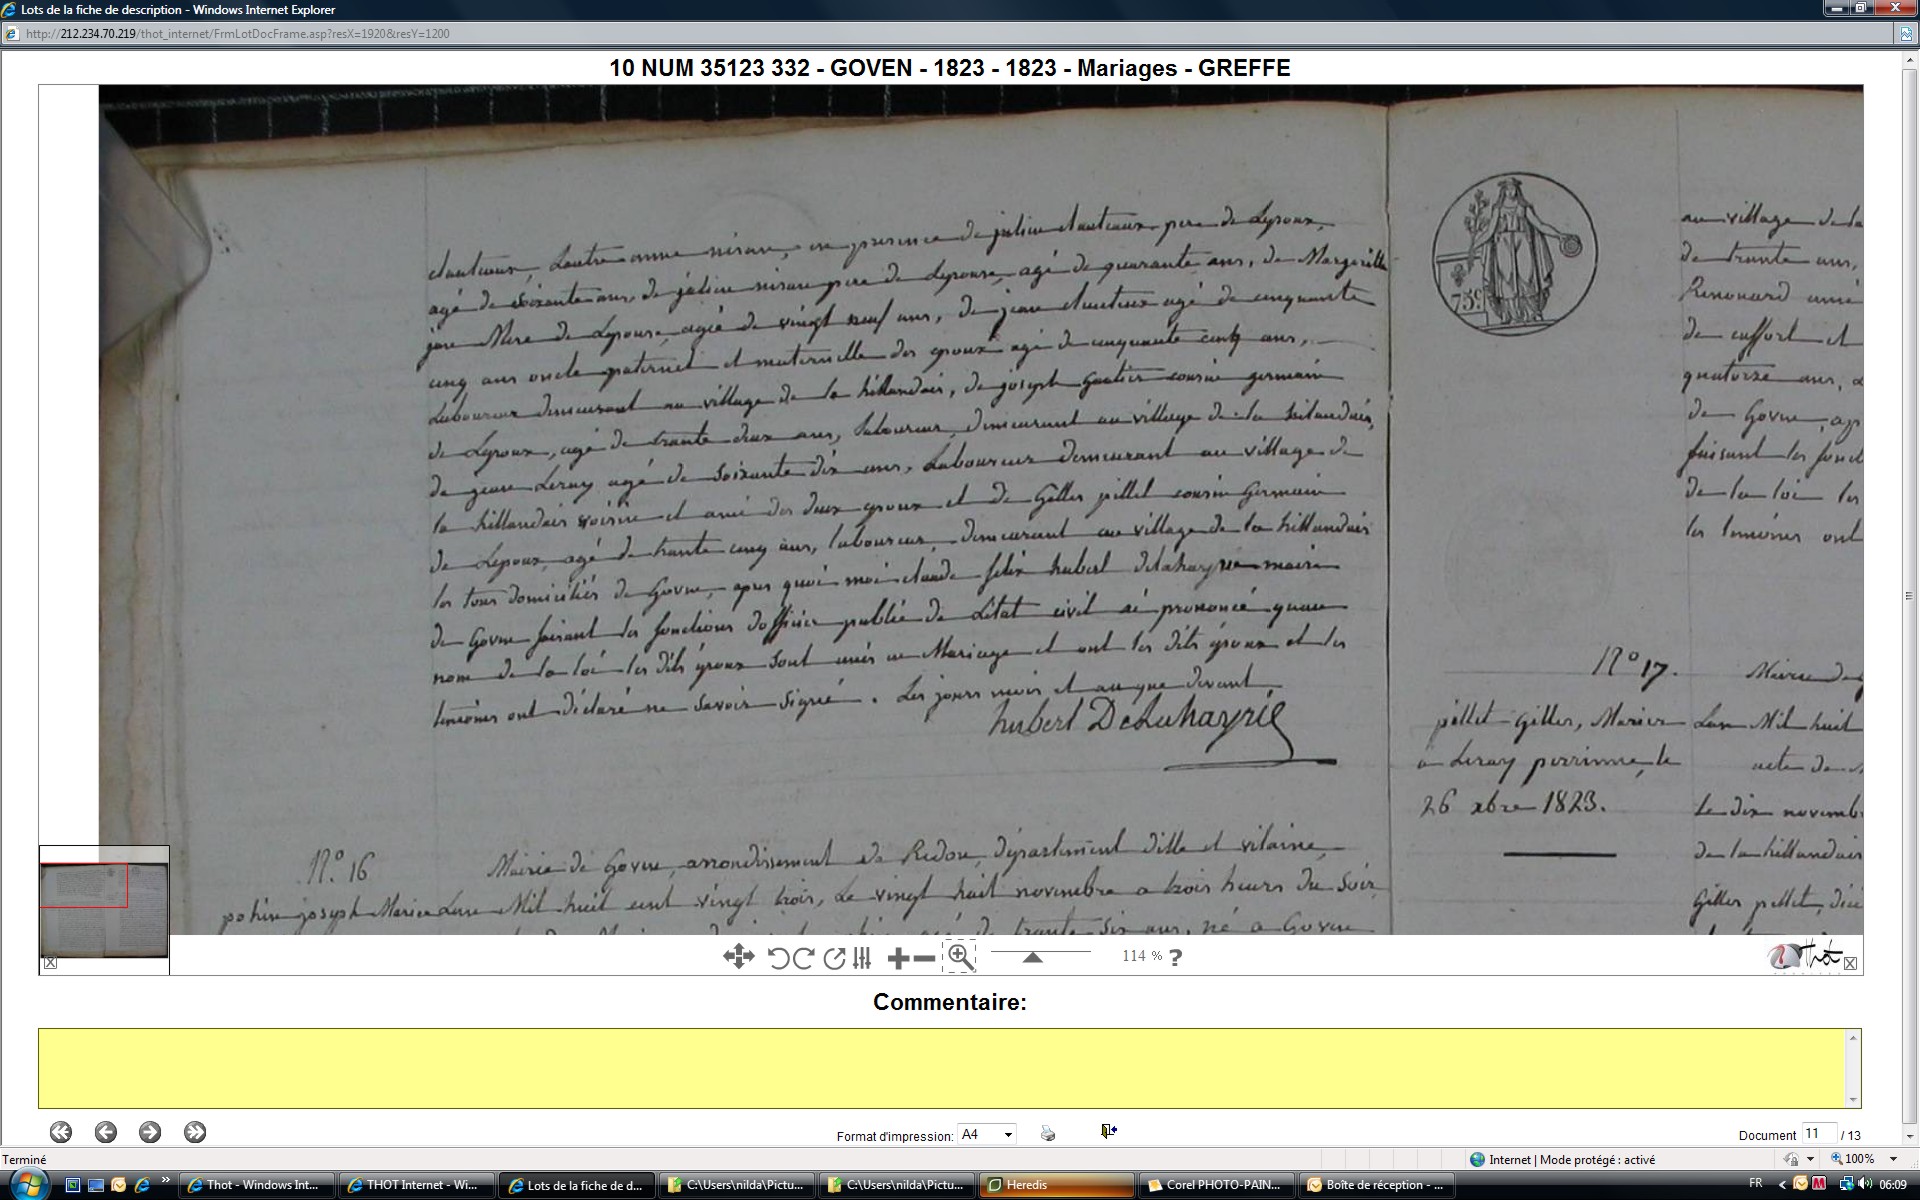 Lots de la fiche de description - Windows Internet Explorer
http://212.234.70.219/thot_internet/FrmLotDocFrame.asp?resX=1920&resY=1200
10 NUM 35123 332 - GOVEN - 1823 - 1823 - Mariages - GREFFE
dautieux, Lautre anne nizan, en presence de julien dautieux pere de Lepoux,
agé de soixante ans, de julien nizan pere de Lepouse, agé de quarante ans, de Margerille
Mere de Lepouse, agée de vingt neuf ans, de jean dautieux agé de cinquante
cinq ans oncle paternel et maternelle des epoux agé de cinquante cinq ans,
Laboureur demeurant au village de la hillandais, de joseph Gautier cousin germain
de Lepoux, agé de trante deux ans, laboureur, demeurant au village de la
de jean Leray agé de soixante dix ans, Laboureur demeurant au village de
la hillandais voisin et ami des deux epoux et de Gilles pillet cousin Germain
de Lepoux, agé de trante cinq ans, laboureur, demeurant au village de la hillandais
les tous domiciliés de Goven, apres quoi moi claude felix hubert delahayrie maire
de Goven faisant les fonctions dofficier public de Létat civil ai prononcé quau
nom de la loi les dits époux sont unis en Mariage et ont les dits époux et les
témoins ont déclaré ne savoir signer. Les jours mois et an que devant
hubert Delahayrie
N.º 16
Mairie de Goven, arrondissement de Redon, département dille et vilaine,
joseph Marié Lan Mil huit cent vingt trois, Le vingt huit novembre a trois heurs du soir
de trante six ans, né a Goven
75c
au village de la
de trante ans,
Renouard
de et
quatorze ans,
de Goven, ap
faisant les fonct
de la loi les
les témoins ont
Nº 17.
Mairie de
pillet Gilles, Marier
a Leray perrinne, le
26 xbre 1823.
Lan Mil huit
acte de
Le dix novemb
de la hillandais
Gilles pillet,
114 % ?
Thot
Commentaire:
Format d'impression: A4
Document 11 / 13
Terminé
Internet | Mode protégé : activé
100%
Thot - Windows Int...
THOT Internet - Wi...
Lots de la fiche de d...
C:\Users\nilda\Pictu...
C:\Users\nilda\Pictu...
Heredis
Corel PHOTO-PAIN...
Boîte de réception - ...
FR
06:09